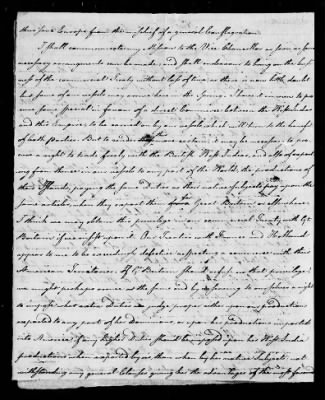 then save Europe from the mischief of a general Conflagration.
I shall commence by a Memoir to the Vice Chancellor as soon as some
necessary arrangements can be made, and shall endeavour to bring on the busi-
ness of the commercial Treaty without loss of time as there is now little doubt
but some of our vessels may come here the Summer. I have it in view to pro-
pose some special favour of a direct Commerce between the West Indies
and this Empire to be carried on by our vessels which will turn to the benefit
of both Parties. But to render this more certain it may be necessary to pro-
cure a right to trade freely with the British West Indies, and also of export-
ing from thence in our vessels to any part of the World, the productions of
their Islands, paying the same duties as their native subjects pay upon the
same articles when they export them to Great Britain or elsewhere.
I think we may obtain this privilege in our commercial Treaty with Gt.
Britain if we insist upon it. Our Treaties with France and Holland
appear to me to be exceedingly defective respecting a commerce with their
American Territories. If Gt. Britain should refuse us that privilege
we might perhaps coerce her thereto by reserving to ourselves a right
to impose what extra duties we judge proper either upon our productions
exported to any part of her dominions, or upon her productions imported
into America if any higher duties should be imposed upon her West India
productions when exported by us, than when by her native subjects, not
withstanding any general Clauses giving her the advantages of the most favoured